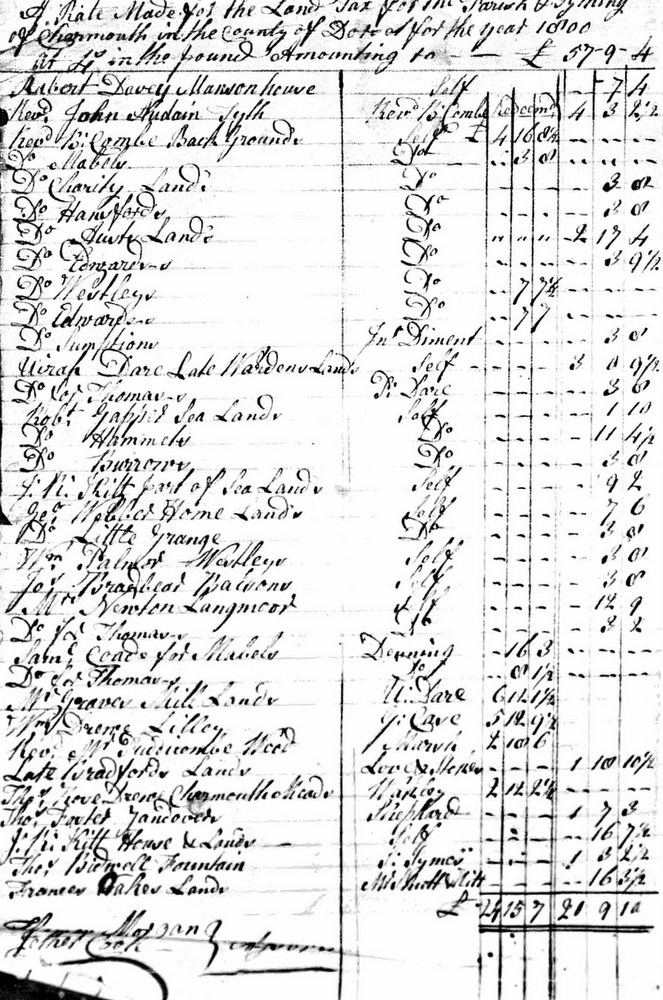 A Rate Made for the Land Tax for the Parish & Tything
of Charmouth in the County of Dorset for the Year 1800
at 4s in the pound Amounting to — £ 57-9-4
Robert Davey Mansonhouse Self - 7 4
Revd John Audain Tyth Revd B: Combe Redeemd 4 3 2½
Revd B: Combe Back Grounds Self £ 4 16 8½
Do Mabels Do - 3 8
Do Charity Lands Do 3 8
Do Hansfords Do 3 8
Do Lands Do 2 17 4
Do Edwards Do 3 9½
Do Westleys Do - 7 7½
Do Edwards Do - 7 7
Do Sumptions Jno Diment 3 8
Dare Late Wardens Lands Self 3 0 9½
Do for Thomas-s Dare 3 8
Robt Gapper Sea Lands Self 1 10
Do Hammets Do 11 4½
Do Burrows Do 3 8
Kitt part of Sea Lands Self 9 2
Geo Home Lands Self 7 6
Do Little Grange Do 3 8
Wm Palmer Westleys Self 3 8
Jos Bradbear Batsons Self 3 8
Mr Newton Langmoor Self 12 9
Do for Thomas-s Do 3 2
Saml Coade for Mabels Denning - 16 3
Do for Thomas-s Do - 8 1½
Mr Graves Mill Lands U: Dare 6 12 1½
Wm Drewe Lilley Case 5 12 9½
Revd Mr Wood Marsh 2 18 6
Late Bradfords Lands 1 18 10½
Thos Rose Drewe Charmouth Meads 2 12 2½
Thos Forter Shephard 1 7 3
Kitt House & Lands Self 16 7½
Thos Bidwell Fountain Symes 1 3 2½
Frances Oakes Lands 16 3½
£ 24 15 7 21 9 10
Morgan
Cook